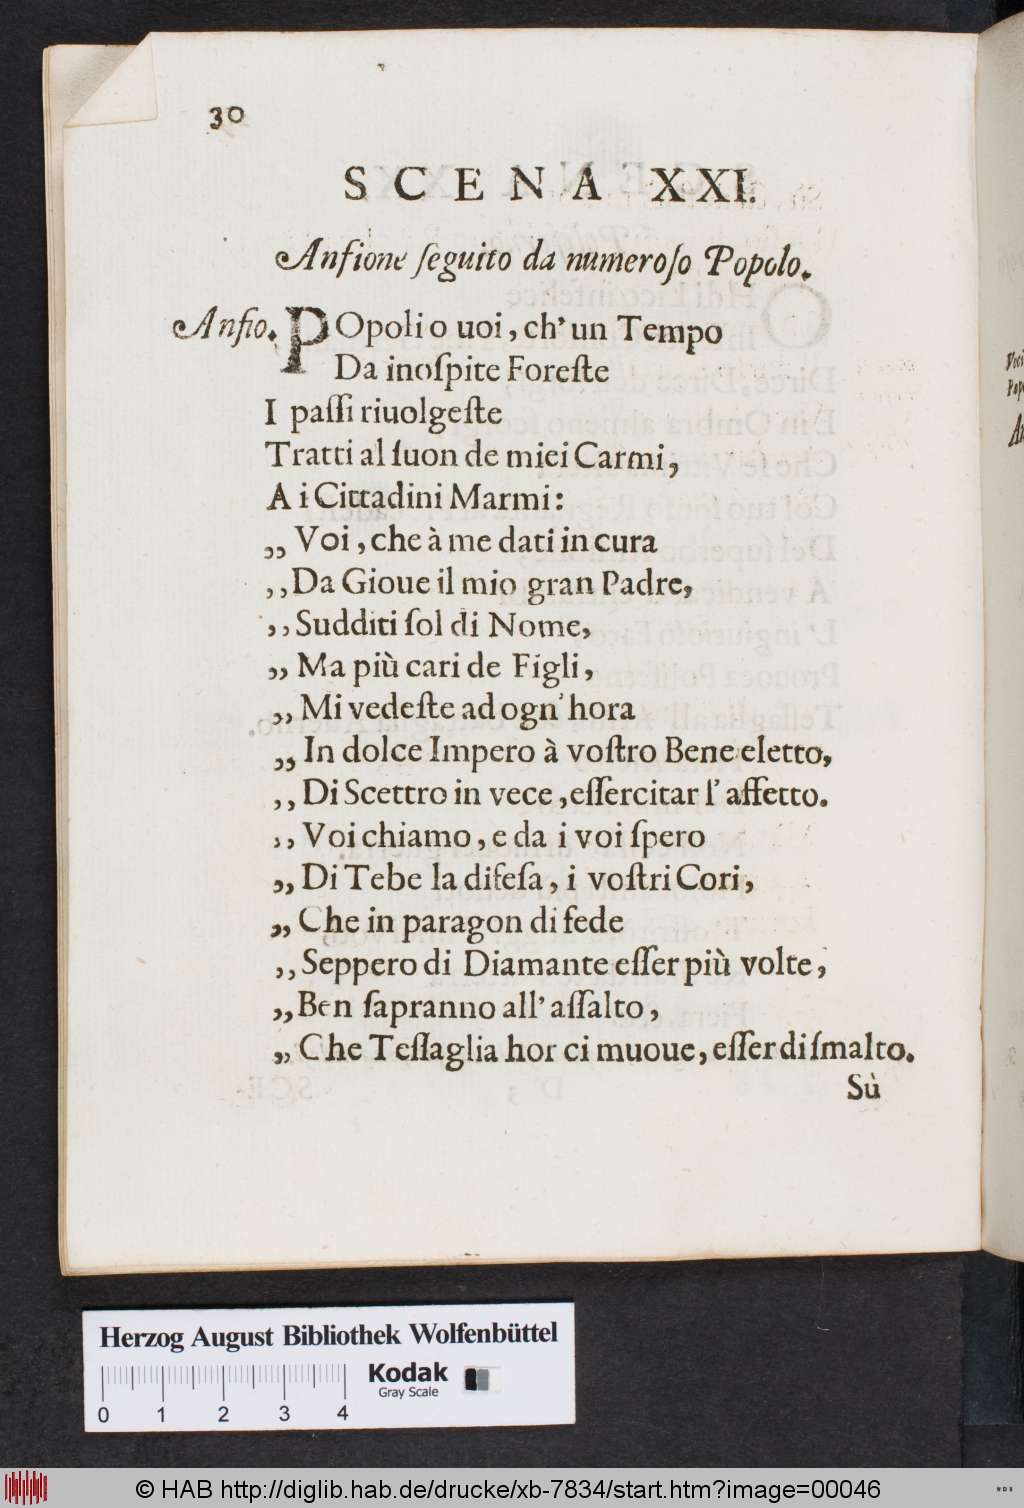 30
SCENA XXI.
Anfione ſeguito da numeroſo Popolo.
Anfio. POpoli o uoi, ch'un Tempo
Da inoſpite Foreſte
I paſſi riuolgeſte
Tratti al ſuon de miei Carmi,
A i Cittadini Marmi:
„ Voi, che à me dati in cura
„ Da Gioue il mio gran Padre,
„ Sudditi ſol di Nome,
„ Ma più cari de Figli,
„ Mi vedeſte ad ogn'hora
„ In dolce Impero à voſtro Bene eletto,
„ Di Scettro in vece, eſſercitar l'affetto.
„ Voi chiamo, e da i voi ſpero
„ Di Tebe la difeſa, i voſtri Cori,
„ Che in paragon di fede
„ Seppero di Diamante eſſer più volte,
„ Ben ſapranno all'aſſalto,
„ Che Teſſaglia hor ci muoue, eſſer di ſmalto.
Sù
Herzog August Bibliothek Wolfenbüttel
Kodak
Gray Scale
0 1 2 3 4
© HAB http://diglib.hab.de/drucke/xb-7834/start.htm?image=00046